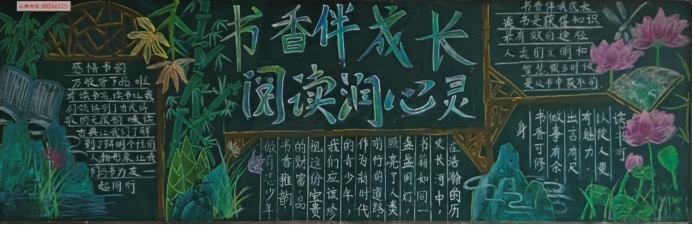 心田热线 88266525
书香伴成长
阅读润心灵
感悟书韵
万般皆下品 唯
有读书高,读书让我
们领悟到了古代诗
歌的无限韵味读
古典让我们了解
到了鲜明个性的
人物形象,让我
们与书为友一
起同行
在浩瀚的历
史长河中,
书籍如同一
盏盏明灯,
照亮了人类
前行的道路,
作为新时代
的青少年,
我们应该珍
视这份宝贵
的财富,品
书香雅韵
做有志少年
书香伴我成长
读书是获得知识
最有效的途径
人类的文明和
智慧最当时该
是从书中获取的
读书可
以使人更
有魅力,
出言有尺
做事有余
书香可修
身